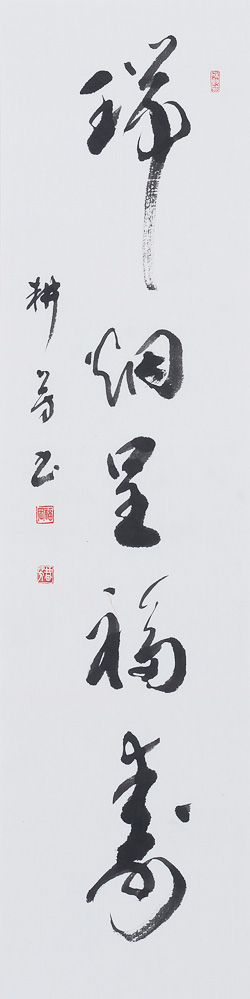 瑞烟呈福寿
耕芳书